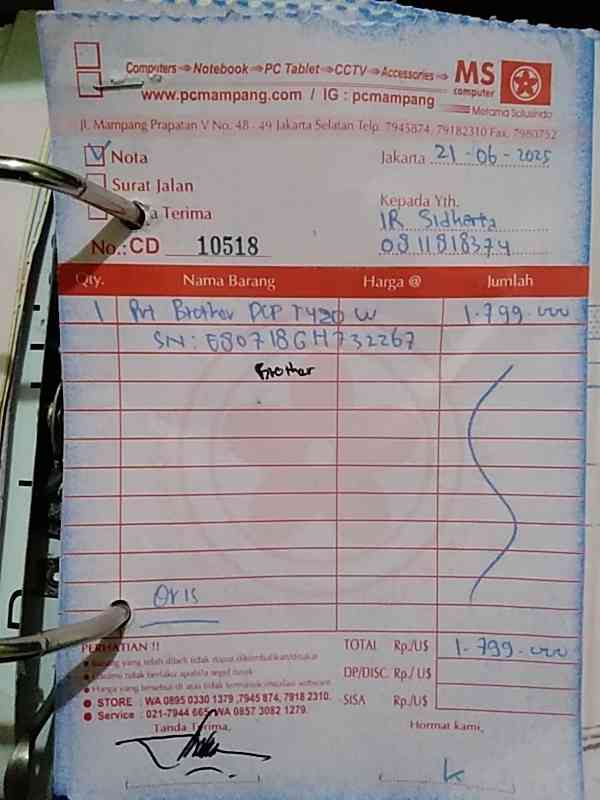 Computers ⇒ Notebook ⇒ PC Tablet ⇒ CCTV ⇒ Accessories ⇒ MS computer
www.pcmampang.com / IG : pcmampang
Metama Solusindo
Jl. Mampang Prapatan V No. 48 - 49 Jakarta Selatan Telp. 7945874, 79182310 Fax. 7980752
Nota
Jakarta 21-06-2025
Surat Jalan
Kepada Yth.
a Terima
IR Sidharta
No.: CD 10518
0811818374
Qty. Nama Barang Harga @ Jumlah
1 Prt Brother DCP T420 W 1.799.000
SN: E80718GH732267
Brother
Oris
PERHATIAN !!
TOTAL Rp./U$ 1.799.000
Barang yang telah dibeli tidak dapat dikembalikan/ditukar
DP/DISC. Rp./U$
Harga yang tersebut di atas tidak termasuk instalasi software
SISA Rp./U$
STORE : WA 0895 0330 1379 ,7945 874, 7918 2310.
Service : 021-7944 665, WA 0857 3082 1279.
Tanda Terima,
Hormat kami,